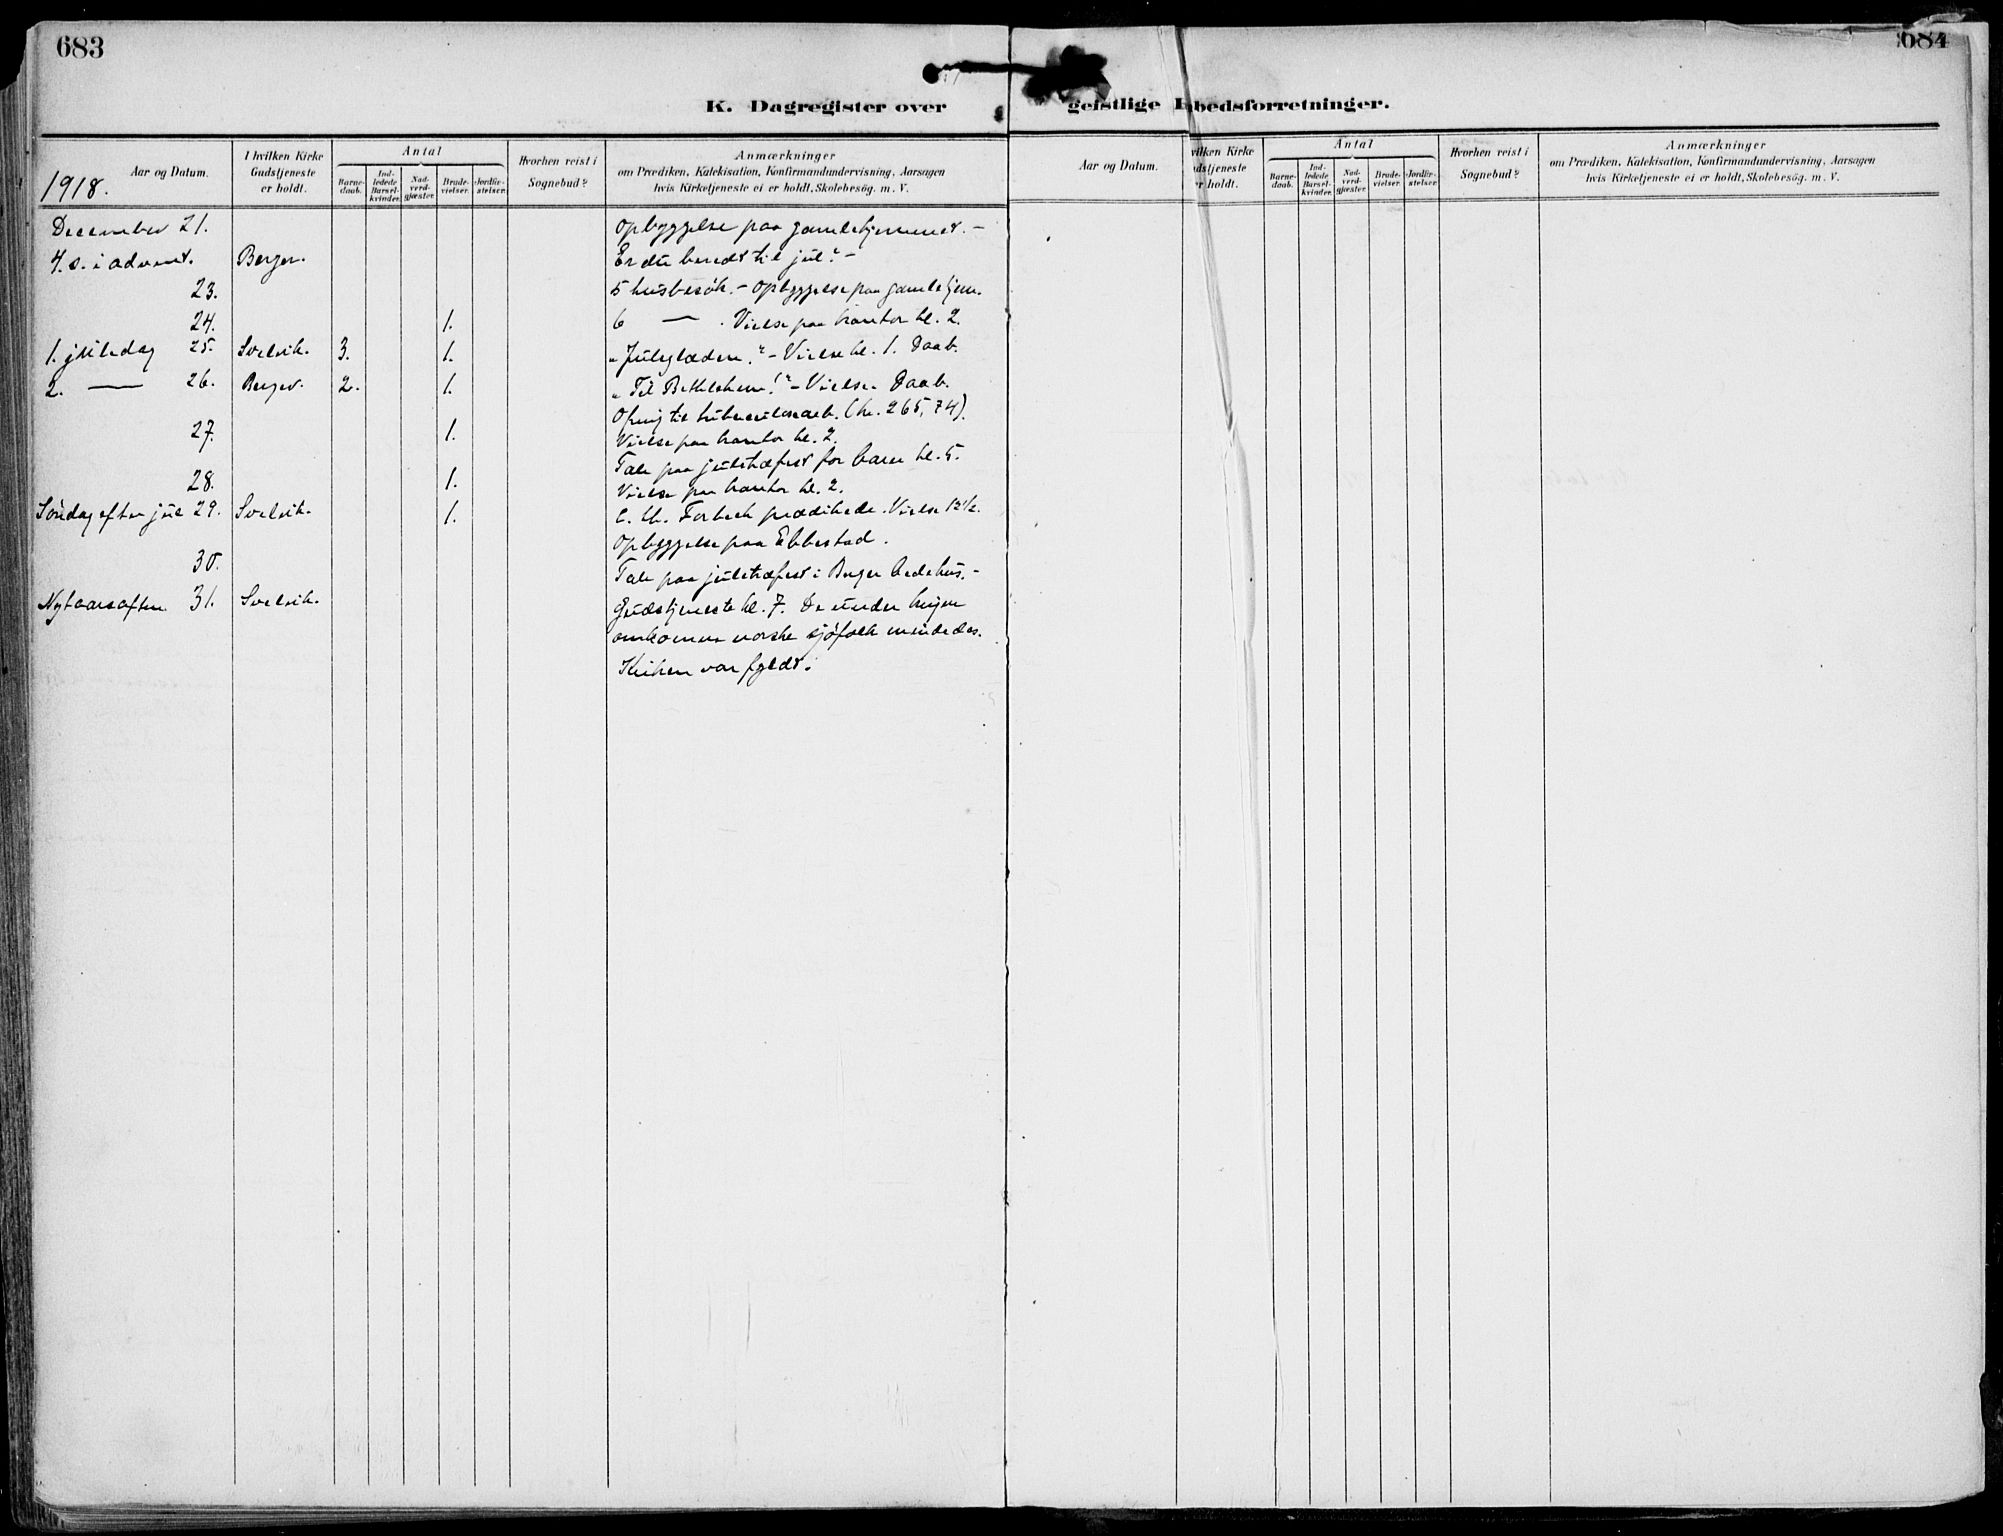 683
684
K. Dagregister over geistlige Embedsforretninger.
Aar og Datum.
I hvilken Kirke Gudstjeneste er holdt.
Antal
Barne-daab.
Ind-ledede Barsel-kvinder.
Nad-verd-gjæster.
Brude-vielser.
Jordfæ-stelser.
Hvorhen reist i Sognebud?
Anmærkninger
om Prædiken, Katekisation, Konfirmandundervisning, Aarsagen
hvis Kirketjeneste ei er holdt, Skolebesøg. m. V.
1918.
December 21. Opbyggelse paa gamlehjemmet. -
4. s. i advent. Berger. Er du beredt til jul? -
23. 5 husbesøk. - Opbyggelse paa gamlehjem.
24. 1. 6 — . Vielse paa kontor kl. 2.
1. juledag 25. Svelvik. 3. 1. "Juleglæden." - Vielse kl. 1. Daab.
2. — 26. Berger. 2. 1. "Til Bethlehem!" - Vielse. Daab.
Ofring til tuberkulosearb. (kr. 265,74).
27. 1. Vielse paa kontor kl. 2.
Tale paa juletræfest for barn kl. 5.
28. 1. Vielse paa kontor kl. 2.
Søndag efter jul 29. Svelvik. 1. c. th. Forbech prædikede. Vielse 12½.
Opbyggelse paa Ebbestad.
30. Tale paa juletræfest i Berger bedehus. -
Nytaarsaften 31. Svelvik. Gudstjeneste kl. 7. De under krigen
omkomne norske sjøfolk mindedes.
Kirken var fyldt.
Aar og Datum.
hvilken Kirke
Gudstjeneste
er holdt.
Antal
Barne-daab.
Ind-ledede Barsel-kvinder.
Nad-verd-gjæster.
Brude-vielser.
Jordfæ-stelser.
Hvorhen reist i Sognebud?
Anmærkninger
om Prædiken, Katekisation, Konfirmandundervisning, Aarsagen
hvis Kirketjeneste ei er holdt, Skolebesøg. m. V.